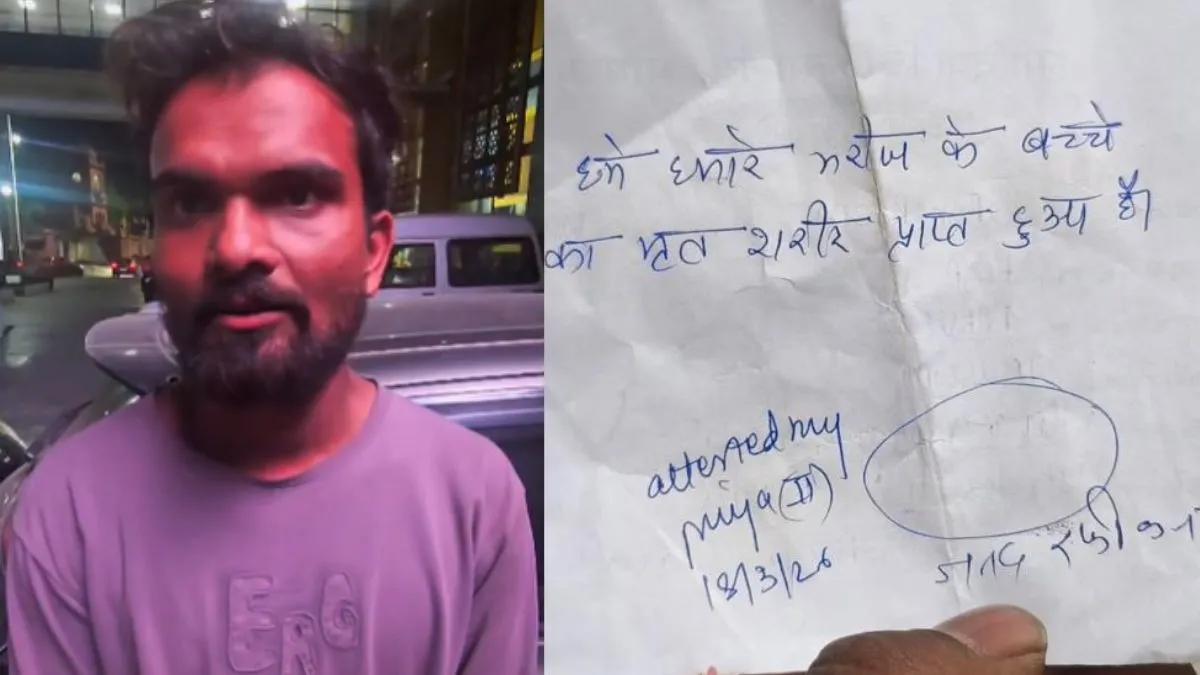 ERG
हमे हमारे मरीज के बच्चे
का मृत शरीर प्राप्त हुआ है।
attested my
priya (II)
18/3/26